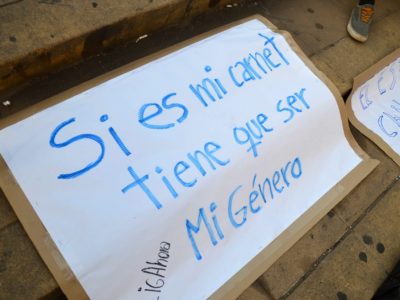 Si es mi carnet
tiene que ser
Mi Género
IGAhora